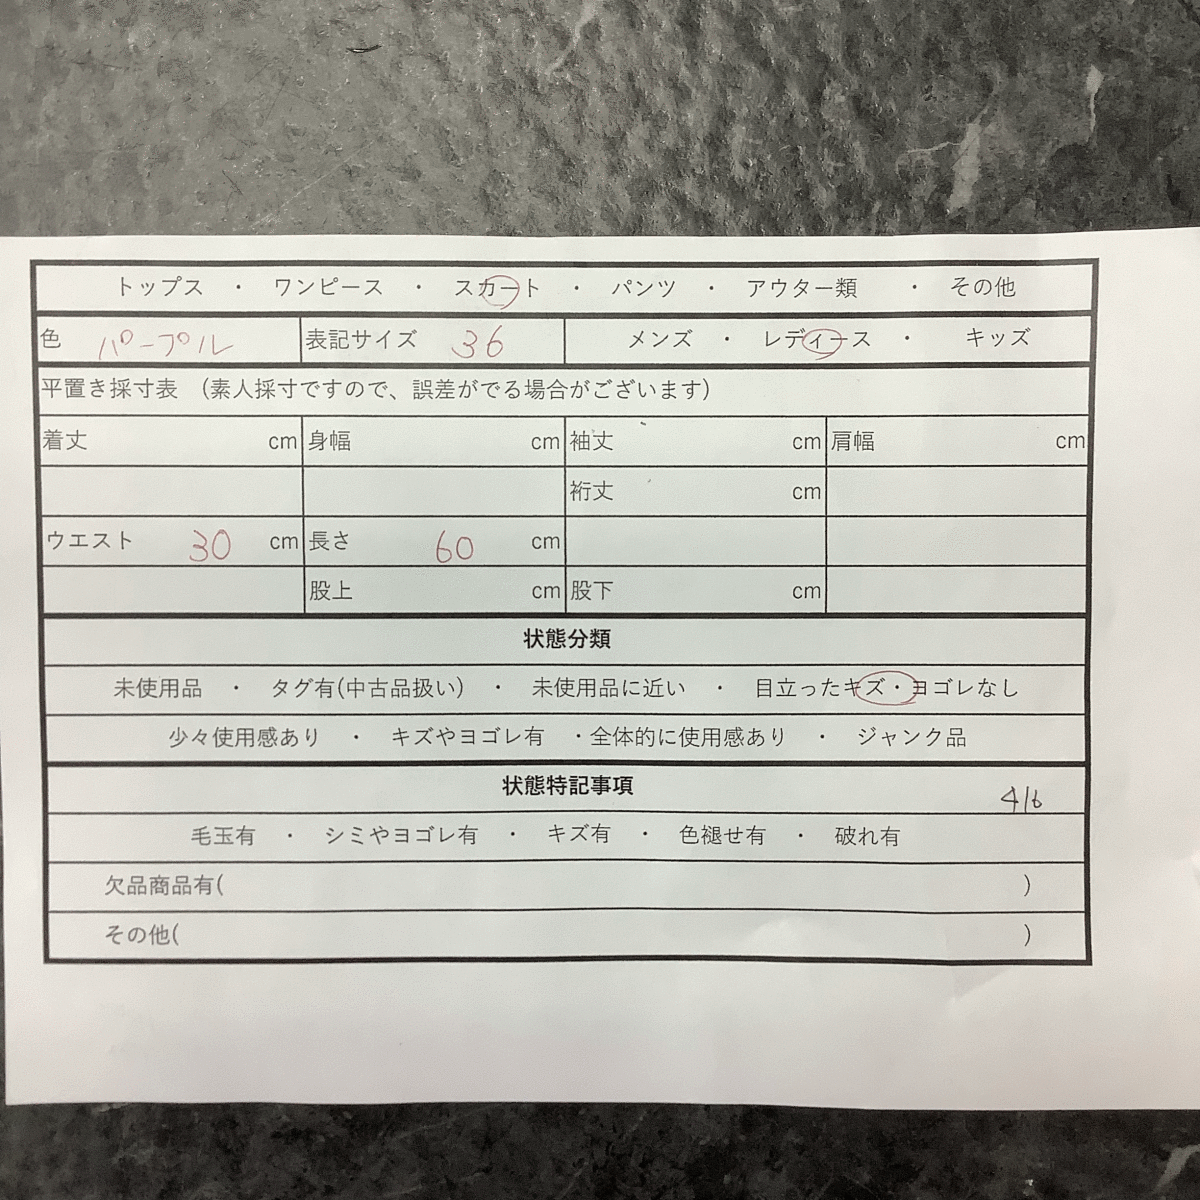 トップス ・ ワンピース ・ スカート ・ パンツ ・ アウター類 ・ その他
色 パープル 表記サイズ 36 メンズ ・ レディース ・ キッズ
平置き採寸表 （素人採寸ですので、誤差がでる場合がございます）
着丈 cm 身幅 cm 袖丈 cm 肩幅 cm
裄丈 cm
ウエスト 30 cm 長さ 60 cm
股上 cm 股下 cm
状態分類
未使用品 ・ タグ有(中古品扱い) ・ 未使用品に近い ・ 目立ったキズ・ヨゴレなし
少々使用感あり ・ キズやヨゴレ有 ・全体的に使用感あり ・ ジャンク品
状態特記事項
4/6
毛玉有 ・ シミやヨゴレ有 ・ キズ有 ・ 色褪せ有 ・ 破れ有
欠品商品有( )
その他( )